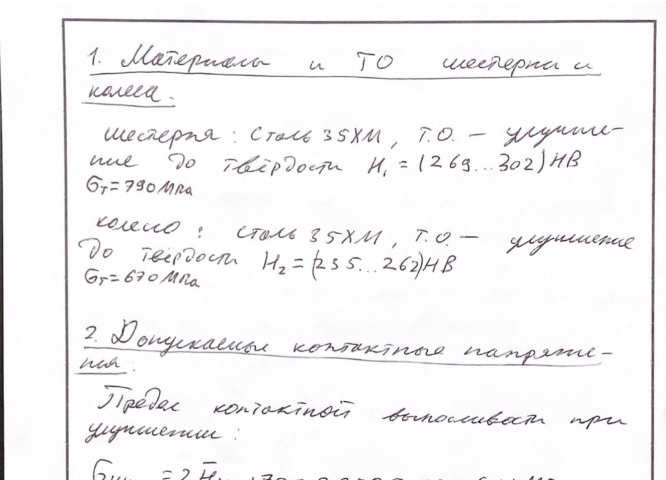 1. Материалы и ТО шестерни и
колеса.
шестерня: Сталь 35ХМ, Т.О. – улучше-
ние до твёрдости H₁ = (269...302)HB
σт=790МПа
колесо: сталь 35ХМ, т.о. – улучшение
до твердости H₂ = (235...262)HB
σт=670МПа
2. Допускаемые контактные напряже-
ния:
Предел контактной выносливости при
улучшении: